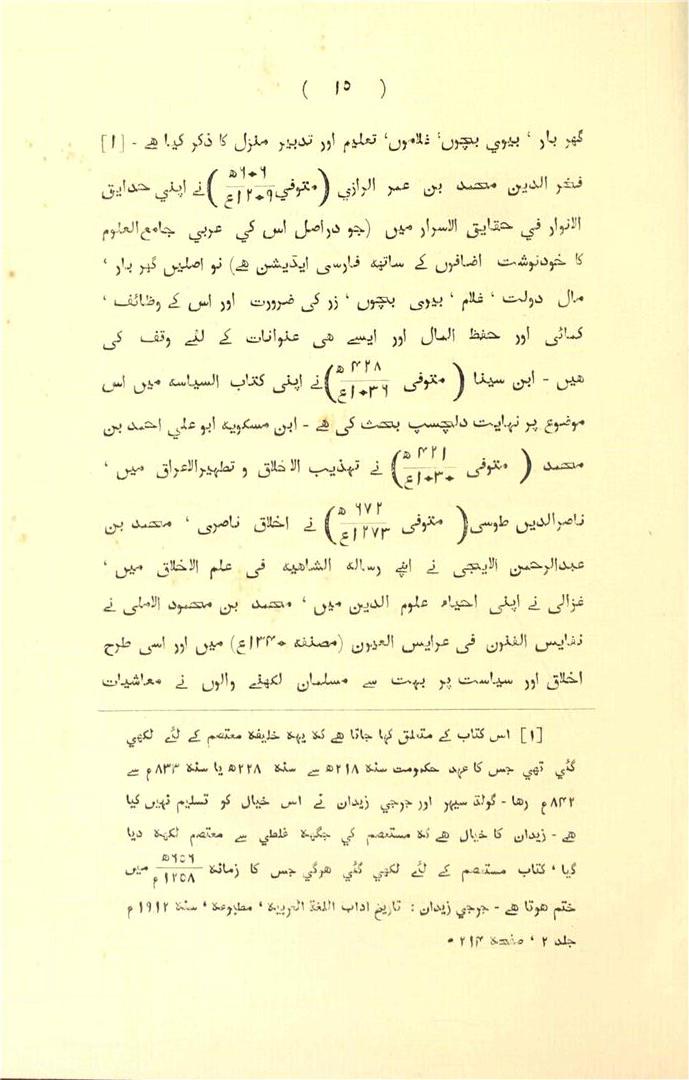 ( ۱۵ )
گھر بار ' بیوي بچوں' غلاموں' تعلیم اور تدبیر منزل کا ذکر کیا ہے - [۱]
فخر الدین محمد بن عمر الرازي (متوفي ۶۰۶ھ / ۱۲۰۹ع) نے اپني حدایق
الانوار في حقایق الاسرار میں (جو دراصل اس کي عربي جامع العلوم
کا خودنوشت اضافروں کے ساتھ فارسي ایڈیشن ہے) نو اصلیں گھر بار '
مال دولت ' غلام ' بیوی بچوں ' زر کی ضرورت اور اس کے وظائف '
کمائی اور حفظ المال اور ایسے ہی عنوانات کے لئے وقف کی
ہیں - ابن سینا ( متوفی ۴۲۸ ھ / ۱۰۳۶ع ) نے اپنی کتاب السیاسہ میں اس
موضوع پر نہایت دلچسپ بحث کی ہے - ابن مسکویہ ابو علي احمد بن
محمد ( متوفی ۴۲۱ ھ / ۱۰۳۰ع ) نے تہذیب الاخلاق و تطہیرالاعراق میں '
ناصرالدین طوسی ( متوفی ۶۷۲ ھ / ۱۲۷۳ع ) نے اخلاق ناصری ' محمد بن
عبدالرحمن الایجی نے اپنے رسالہ الشاہیہ فی علم الاخلاق میں '
غزالی نے اپنی احیاء علوم الدین میں ' محمد بن محمود الاملی نے
نفایس الفنون فی عرایس العیون (مصنفہ ۱۳۴۰ع) میں اور اسی طرح
اخلاق اور سیاست پر بہت سے مسلمان لکھنے والوں نے معاشیات
[۱] اس کتاب کے متعلق کہا جاتا ہے کہ یہہ خلیفہ معتصم کے لئے لکھي
گئي تھي جس کا عہد حکومت سنہ ۲۱۸ھ سے سنہ ۲۲۸ھ یا سنہ ۸۳۳ م سے
۸۴۲ م رہا - گولڈ سیہر اور جرجي زیدان نے اس خیال کو تسلیم نہیں کیا
ہے - زیدان کا خیال ہے کہ مستعصم کي جگہہ غلطي سے معتصم لکھہ دیا
گیا ' کتاب مستعصم کے لئے لکھي گئي ہوگي جس کا زمانہ ۶۵۶ھ / ۱۲۵۸ م میں
ختم ہوتا ہے - جرجي زیدان : تاریخ اداب اللغة العربیہ ' مطبوعہ ' سنہ ۱۹۱۲ م
جلد ۲ ' صفحہ ۲۱۴ •